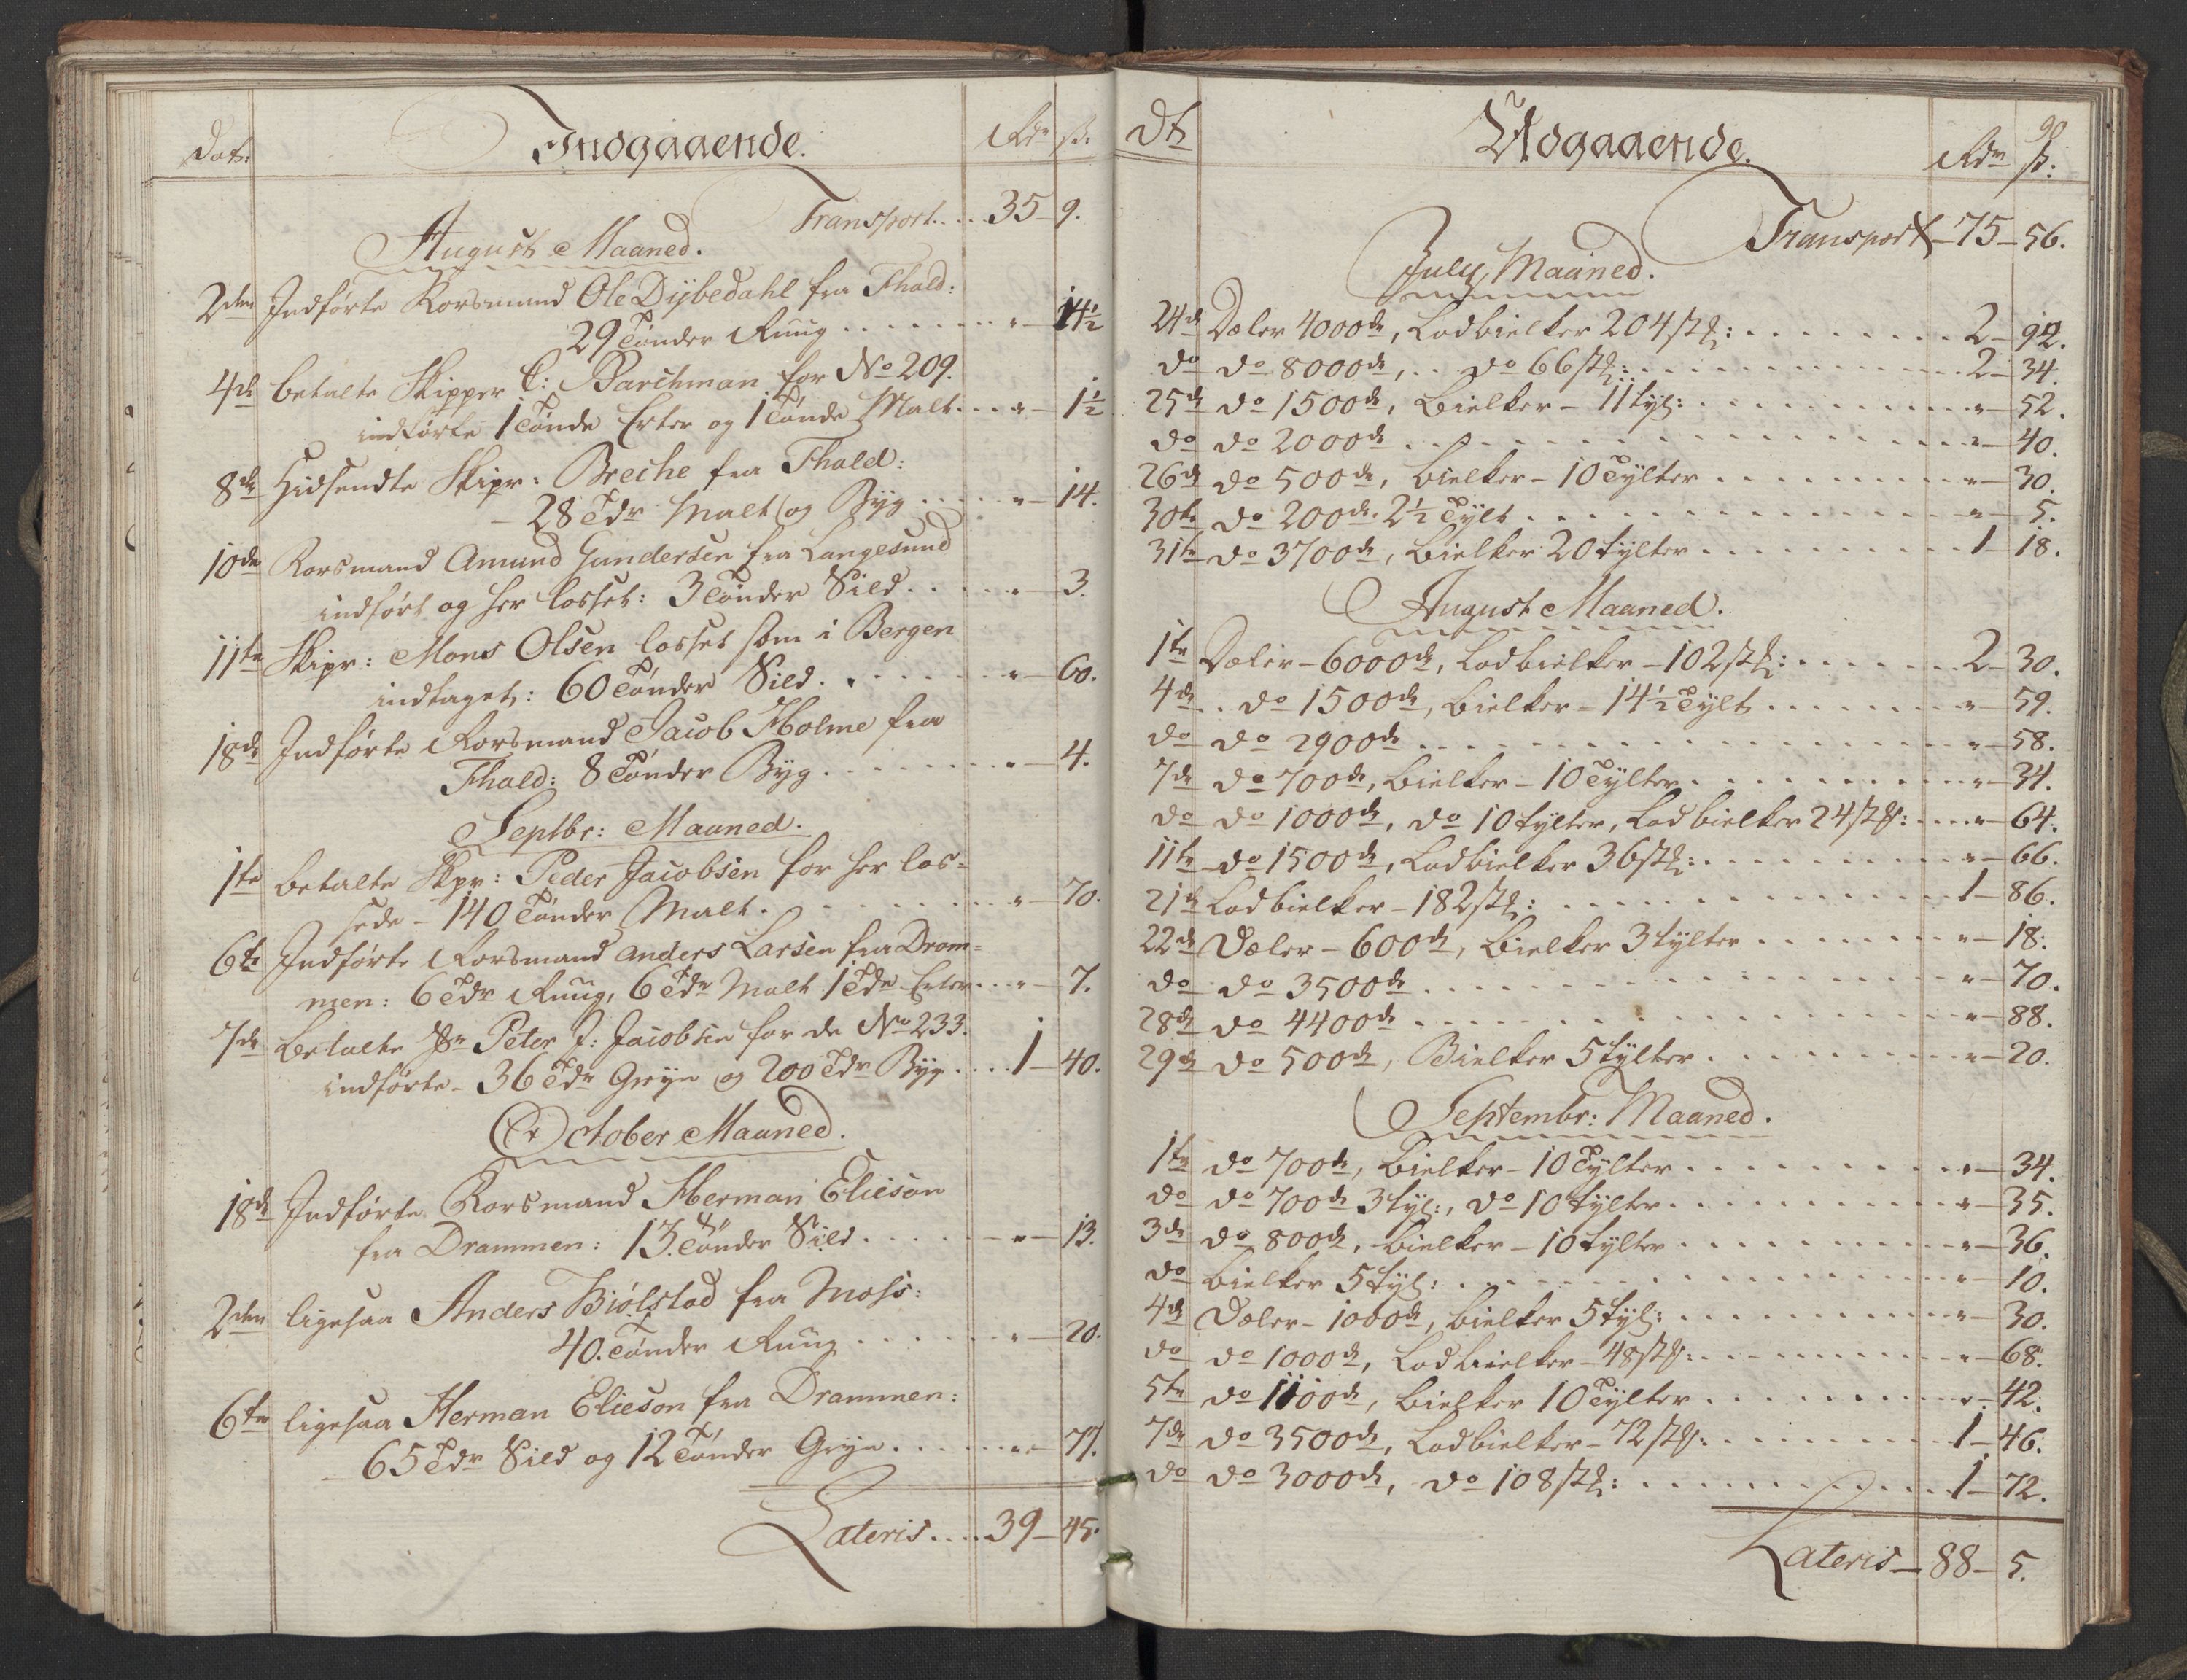 Dat:
Indgaaende.
Rdr
ß:
Transport.... 35 - 9.
August Maaned.
2den Indførte Rorsmand Ole Dybedahl fra Fhald:
29 Tønder Rúúg ....... " - 14½
4de betalte Skipper C: Parchman for No 209.
indførte 1 Tønde Erter og 1 Tønde Malt ... " - 1½
8de Hidsendte Skipr: Breche fra Fhald:
- 28 Tdr Malt og Byg ..... " - 14.
10de Rorsmand Amund Gundersen fra Langesund
indført og her losset: 3 Tønder Sild ..... " - 3.
11te Skipr: Mons Olsen losset som i Bergen
indtaget: 60 Tønder Sild ....... " - 60.
18de Indførte Rorsmand Jacob Holme fra
Fhald: 8 Tønder Byg ....... " - 4.
Septbr: Maaned.
1te betalte Skpr: Peder Jacobsen for her los=
sede - 140 Tønder Malt ........ " - 70.
6te Indførte Rorsmand Anders Larsen fra Dram=
men: 6 Tdr Rúúg, 6 Tdr Malt 1 Tde Erter ... " - 7.
7de Betalte Sr Peter J: Jacobsen for de No 233.
indførte - 36 Tdr Gryn og 200 Tdr Byg .... 1 - 40.
October Maaned.
18de Indførte Rorsmand Herman Elieson
fra Drammen: 13. Tønder Sild ..... " - 13.
2den ligesaa Anders Biølstad fra Moss:
40. Tønder Rúúg ...... " - 20.
6te ligesaa Herman Elieson fra Drammen:
- 65 Tdr Sild og 12 Tønder Gryn ...... " - 77.
Lateris .... 39 - 45.
Dt
Udgaaende.
Rdr
ß:
Transport - 75 - 56.
July Maaned.
24de Dæler 4000de, Ladbielker 204 stk: ....... 2 - 92.
do do 8000de, .. do 66 stk: ....... 2 - 34.
25de do 1500de, Bielker - 11 tyl: ....... " - 52.
do do 2000de ....... " - 40.
26de do 500de, Bielker - 10 Tylter ....... " - 30.
30te do 200de. 2½ Tylt ....... " - 5.
31te do 3700de, Bielker 20 tylter ....... 1 - 18.
August Maaned.
1te Dæler - 6000de, Ladbielker - 102 stk: ....... 2 - 30.
4de .. do 1500de, Bielker - 14½ Tylt ....... " - 59.
do do 2900de ....... " - 58.
7de do 700de, Bielker - 10 Tylter ....... " - 34.
do do 1000de, do 10 tylter, Ladbielker 24 stk: .... " - 64.
11te do 1500de, Ladbielker 36 stk: ....... " - 66.
21de Ladbielker - 182 stk: ....... 1 - 86.
22de Dæler - 600de, Bielker 3 tylter ....... " - 18.
do do 3500de ....... " - 70.
28de do 4400de ....... " - 88.
29de do 500de, Bielker 5 tylter ....... " - 20.
Septembr: Maaned.
1te do 700de, Bielker - 10 Tylter ....... " - 34.
do do 700de 3 tyl:, do 10 tylter ....... " - 35.
3de do 800de, Bielker - 10 tylter ....... " - 36.
do Bielker 5 tyl: ....... " - 10.
4de Dæler - 1000de, Bielker 5 tyl: ....... " - 30.
do do 1000de, Ladbielker - 48 stk: ....... " - 68.
5te do 1100de, Bielker 10 Tylter ....... " - 42.
7de do 3500de, Ladbielker - 72 stk: ....... 1 - 46.
do do 3000de, do 108 stk: ....... 1 - 72.
Lateris - 88 - 5.